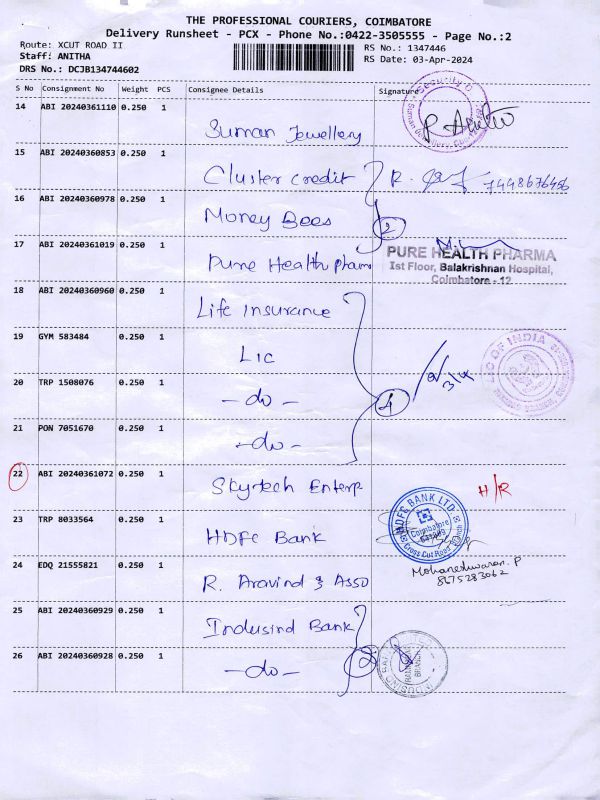 THE PROFESSIONAL COURIERS, COIMBATORE
Delivery Runsheet - PCX - Phone No.:0422-3505555 - Page No.:2
Route: XCUT ROAD II
RS No.: 1347446
Staff: ANITHA
RS Date: 03-Apr-2024
DRS No.: DCJB134744602
S No Consignment No Weight PCS Consignee Details Signature
14 ABI 20240361110 0.250 1
Suman Jewellery
Security
15 ABI 20240360853 0.250 1
Cluster credit R. 7448676456
16 ABI 20240360978 0.250 1
Money Bees
2
17 ABI 20240361019 0.250 1
Pure Health pharm
PURE HEALTH PHARMA
Ist Floor, Balakrishnan Hospital,
Coimbatore - 12
18 ABI 20240360960 0.250 1
Life insurance
19 GYM 583484 0.250 1
LIC
LIC OF INDIA
20 TRP 1508076 0.250 1
- do -
4
3/4
21 PON 7051670 0.250 1
- do -
22 ABI 20240361072 0.250 1
Skytech Enterp
H/R
23 TRP 8033564 0.250 1
HDFC Bank
HDFC BANK LTD.
Coimbatore
Cross Cut Road Branch
24 EDQ 21555821 0.250 1
R. Aravind & Asso
Mohaneshwaran. P
8675283062
25 ABI 20240360929 0.250 1
Indusind Bank
26 ABI 20240360928 0.250 1
- do -
2